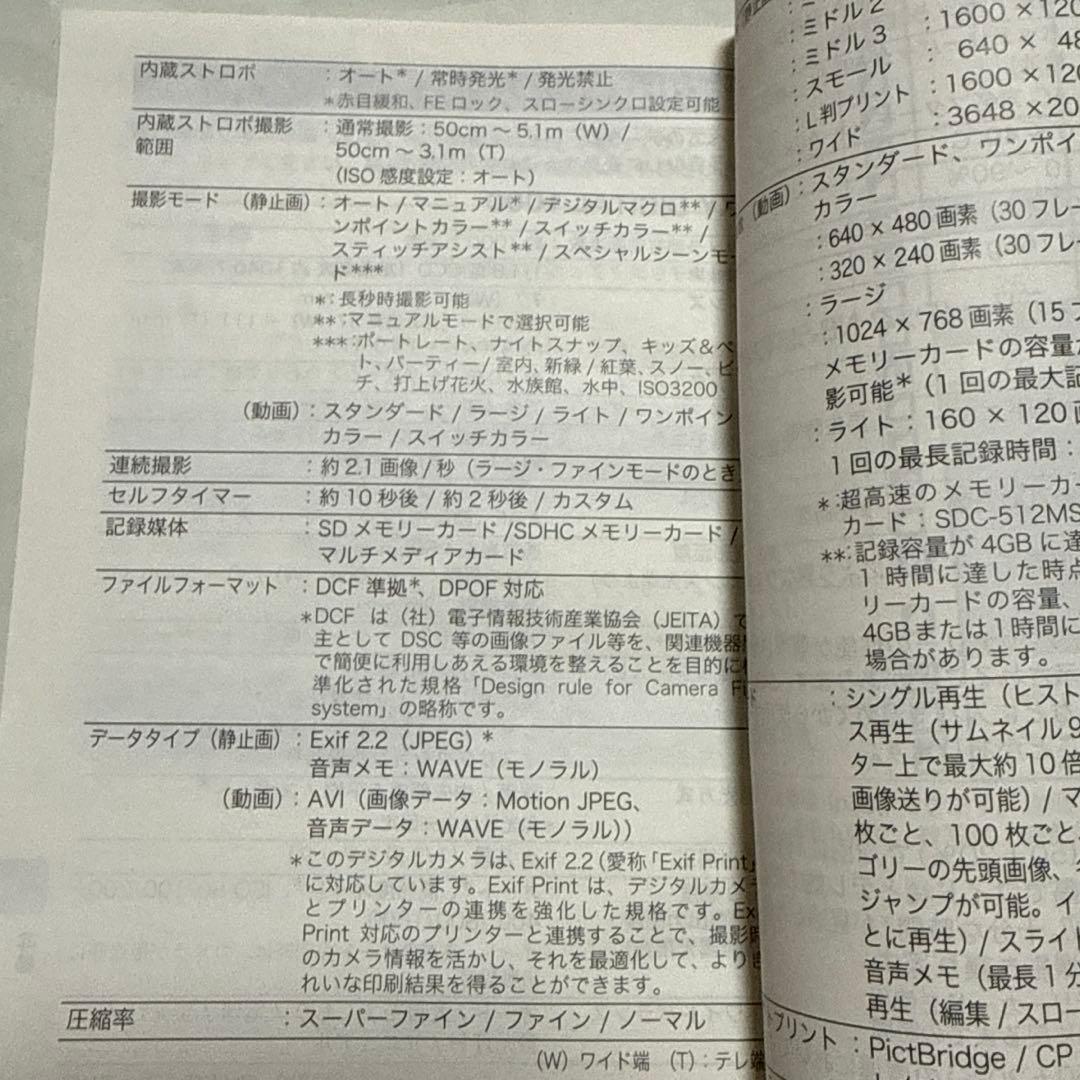 内蔵ストロボ ：オート* / 常時発光* / 発光禁止
*赤目緩和、FE ロック、スローシンクロ設定可能
内蔵ストロボ撮影 ：通常撮影：50cm 〜 5.1m（W）/
範囲 50cm 〜 3.1m（T）
（ISO 感度設定：オート）
撮影モード （静止画）：オート / マニュアル* / デジタルマクロ** / ワ
ンポイントカラー** / スイッチカラー** /
スティッチアシスト** / スペシャルシーンモー
ド***
*：長秒時撮影可能
**：マニュアルモードで選択可能
***：ポートレート、ナイトスナップ、キッズ＆ペ
ト、パーティー / 室内、新緑 / 紅葉、スノー、ビ
チ、打上げ花火、水族館、水中、ISO3200
（動画）：スタンダード / ラージ / ライト / ワンポイン
カラー / スイッチカラー
連続撮影 ：約 2.1 画像 / 秒（ラージ・ファインモードのとき
セルフタイマー ：約 10 秒後 / 約 2 秒後 / カスタム
記録媒体 ：SD メモリーカード /SDHC メモリーカード /
マルチメディアカード
ファイルフォーマット ：DCF 準拠*、DPOF 対応
*DCF は（社）電子情報技術産業協会（JEITA）で
主として DSC 等の画像ファイル等を、関連機器
で簡便に利用しあえる環境を整えることを目的に
準化された規格「Design rule for Camera Fi
system」の略称です。
データタイプ（静止画）：Exif 2.2（JPEG）*
音声メモ：WAVE（モノラル）
（動画）：AVI（画像データ：Motion JPEG、
音声データ：WAVE（モノラル））
*このデジタルカメラは、Exif 2.2（愛称「Exif Print」
に対応しています。Exif Print は、デジタルカメラ
とプリンターの連携を強化した規格です。Ex
Print 対応のプリンターと連携することで、撮影時
のカメラ情報を活かし、それを最適化して、よりき
れいな印刷結果を得ることができます。
圧縮率 ：スーパーファイン / ファイン / ノーマル
（W）ワイド端 （T）：テレ端
ミドル 2 ：1600 × 120
ミドル 3 ： 640 × 48
スモール ：1600 × 120
L判プリント ：3648 × 20
ワイド
（動画）：スタンダード、ワンポイ
カラー
：640 × 480 画素（30 フレー
：320 × 240 画素（30 フレ
：ラージ
：1024 × 768 画素（15 フ
メモリーカードの容量が
影可能*（1 回の最大記
：ライト：160 × 120 画
1 回の最長記録時間：
*：超高速のメモリーカー
カード：SDC-512MS
**：記録容量が 4GB に達
1 時間に達した時点
リーカードの容量、
4GB または 1 時間に
場合があります。
：シングル再生（ヒスト
ス再生（サムネイル 9
ター上で最大約 10 倍
画像送りが可能）/ マ
枚ごと、100 枚ごと
ゴリーの先頭画像、
ジャンプが可能。イ
とに再生）/ スライド
音声メモ（最長 1 分
再生（編集 / スロー
プリント ：PictBridge / CP